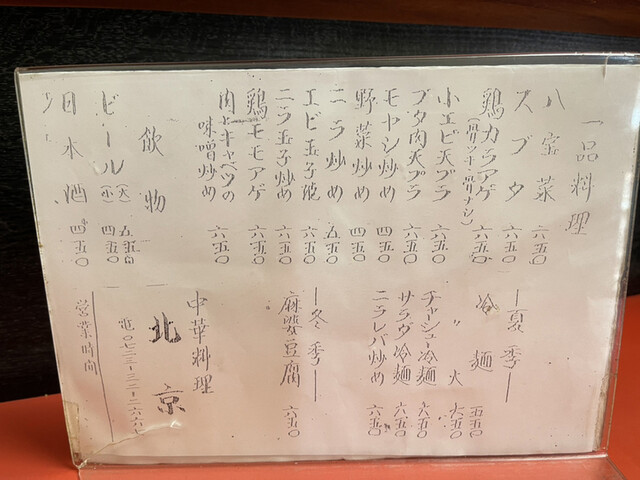 一品料理
八宝菜 六五〇
スブタ 六五〇
鶏カラアゲ 六五〇
(骨ツキ・骨ナシ)
小エビ天プラ 六五〇
ブタ肉天プラ 六五〇
モヤシ炒め 四五〇
野菜炒め 四五〇
ニラ炒め 五五〇
エビ玉子 六五〇
ニラ玉子炒め 六五〇
鶏モモアゲ 六五〇
肉とキャベツの
味噌炒め 六五〇
飲物
ビール(大) 五五〇
(小) 四五〇
日本酒 四五〇
―夏季―
冷麺 五五〇
〃 大 六五〇
チャーシュー冷麺 六五〇
サラダ冷麺 六五〇
ニラレバ炒め 六五〇
―冬季―
麻婆豆腐 六五〇
中華料理
北京
電〇七二三―二二―二六六
営業時間